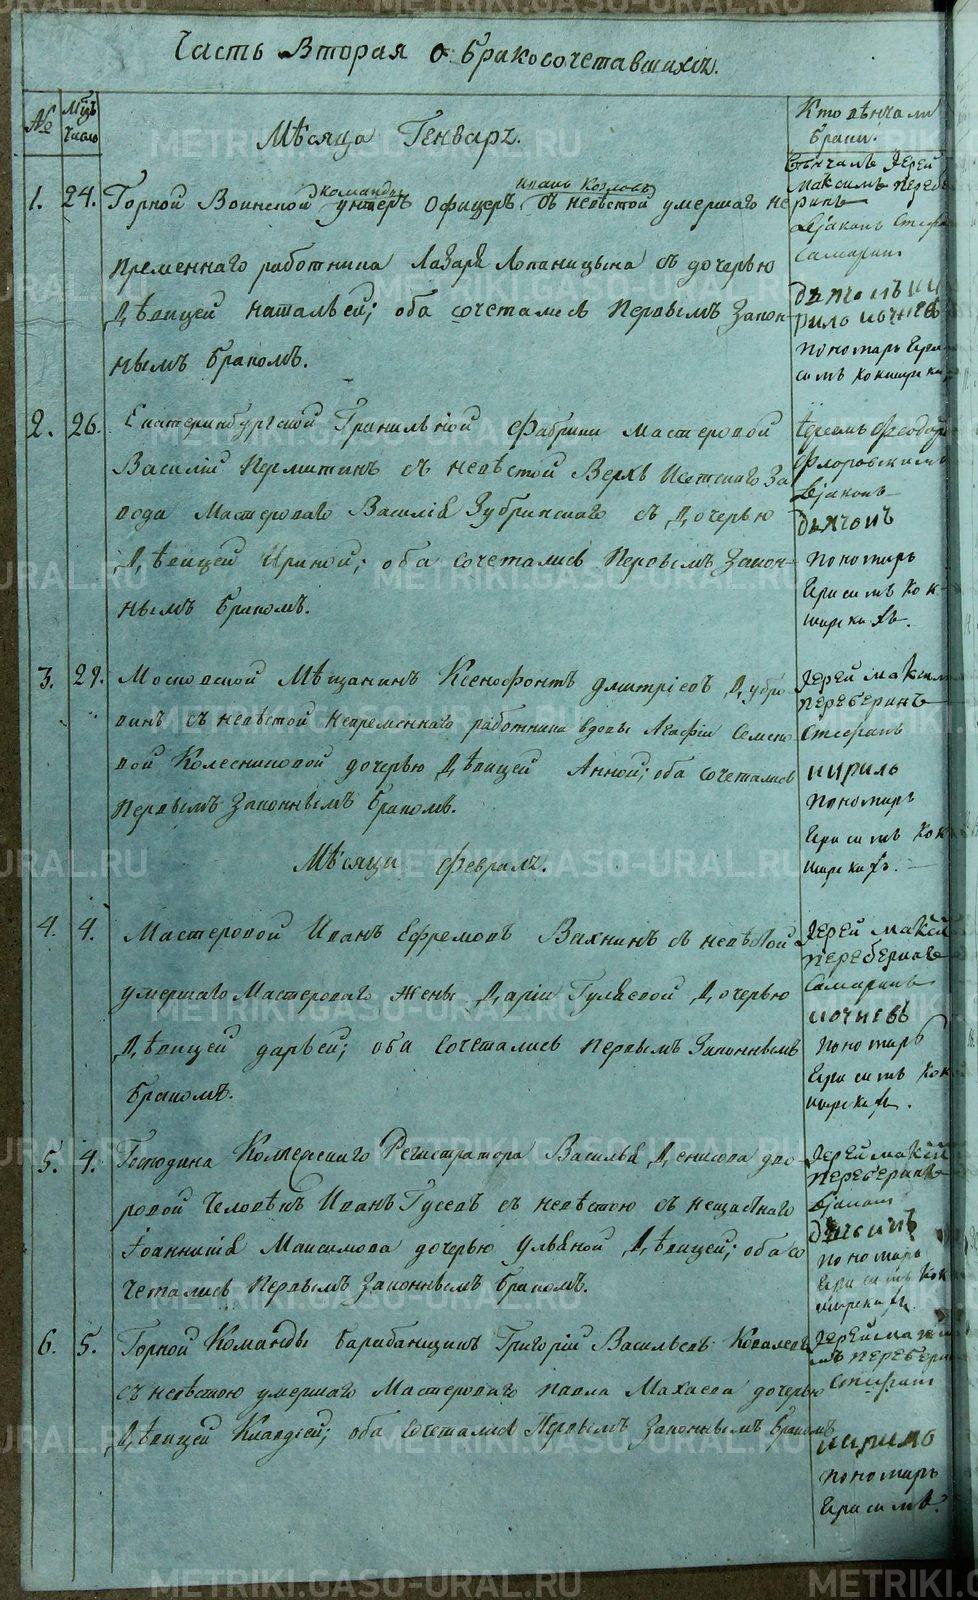 Часть Вторая о бракосочетавшихся.
№
Мцъ число
Мѣсяца Генварь.
Кто вѣнчали браки.
1. 24. Горной Воинской команды унтеръ офицеръ Иванъ Козловъ съ невѣстой умершаго не
пременнаго работника Лазаря Лопаницына съ дочерью
дѣвицей натальей; оба сочетались первымъ закон
нымъ бракомъ.
Вѣнчалъ Iерей
Максимъ Переб
ринъ
Дiаконъ Стеф
Самаринъ
дьячокъ Ки
рило Кочневъ
пономарь Гера
симъ Кокшарска
2. 26. Екатеринбургской Гранильной Фабрики мастеровой
Василiй Пермитинъ съ невѣстой Верхъ Исетскаго За
вода Мастероваго Василiя Зубринскаго съ дочерью
дѣвицей Ириной; оба сочетались первымъ закон
нымъ бракомъ.
Iереемъ Феодор
Флоровскимъ
Дiаконъ
дьячокъ
пономарь
Герасимъ Кок
шарскихъ.
3. 29. Московской Мѣщанинъ Ксенофонтъ Дмитрiевъ Дубро
винъ съ невѣстой непременнаго работника вдовы Агафiи Семено
вой Колесниковой дочерью дѣвицей Анной; оба сочетались
первымъ законнымъ бракомъ.
Iерей Максим
Переберинъ
Стефанъ
Кирилъ
пономарь
Герасимъ Кок
шарскихъ.
Мѣсяца февраль.
4. 4. Мастеровой Иванъ Ефремовъ Вахнинъ съ невѣстой
умершаго Мастероваго жены Дарiи Гуляевой дочерью
дѣвицей дарьей; оба сочетались первымъ законнымъ
бракомъ.
Iерей Макси
Переберинъ
Самаринъ
Кочневъ
пономарь
Герасимъ Кок
шарскихъ.
5. 4. Господина Коллежскаго Регистратора Василья Денисова дво
ровой человѣкъ Иванъ Гусевъ съ невѣстою съ нещастнаго
Iоанникiя Максимова дочерью Ульяной дѣвицей; оба со
четались первымъ законнымъ бракомъ.
Iерей Макси
Переберинъ
Дiаконъ
дьячокъ
пономарь
Герасимъ Кок
шарскихъ.
6. 5. Горной Команды барабанщикъ Григорiй Васильевъ Ковалевъ
съ невѣстою умершаго Мастероваго Павла Махаева дочерью
дѣвицей Клавдiей; оба сочетались первымъ законнымъ бракомъ
Iерей Макси
мъ Перебери
Стефанъ
Кирило
пономарь
Герасимъ.